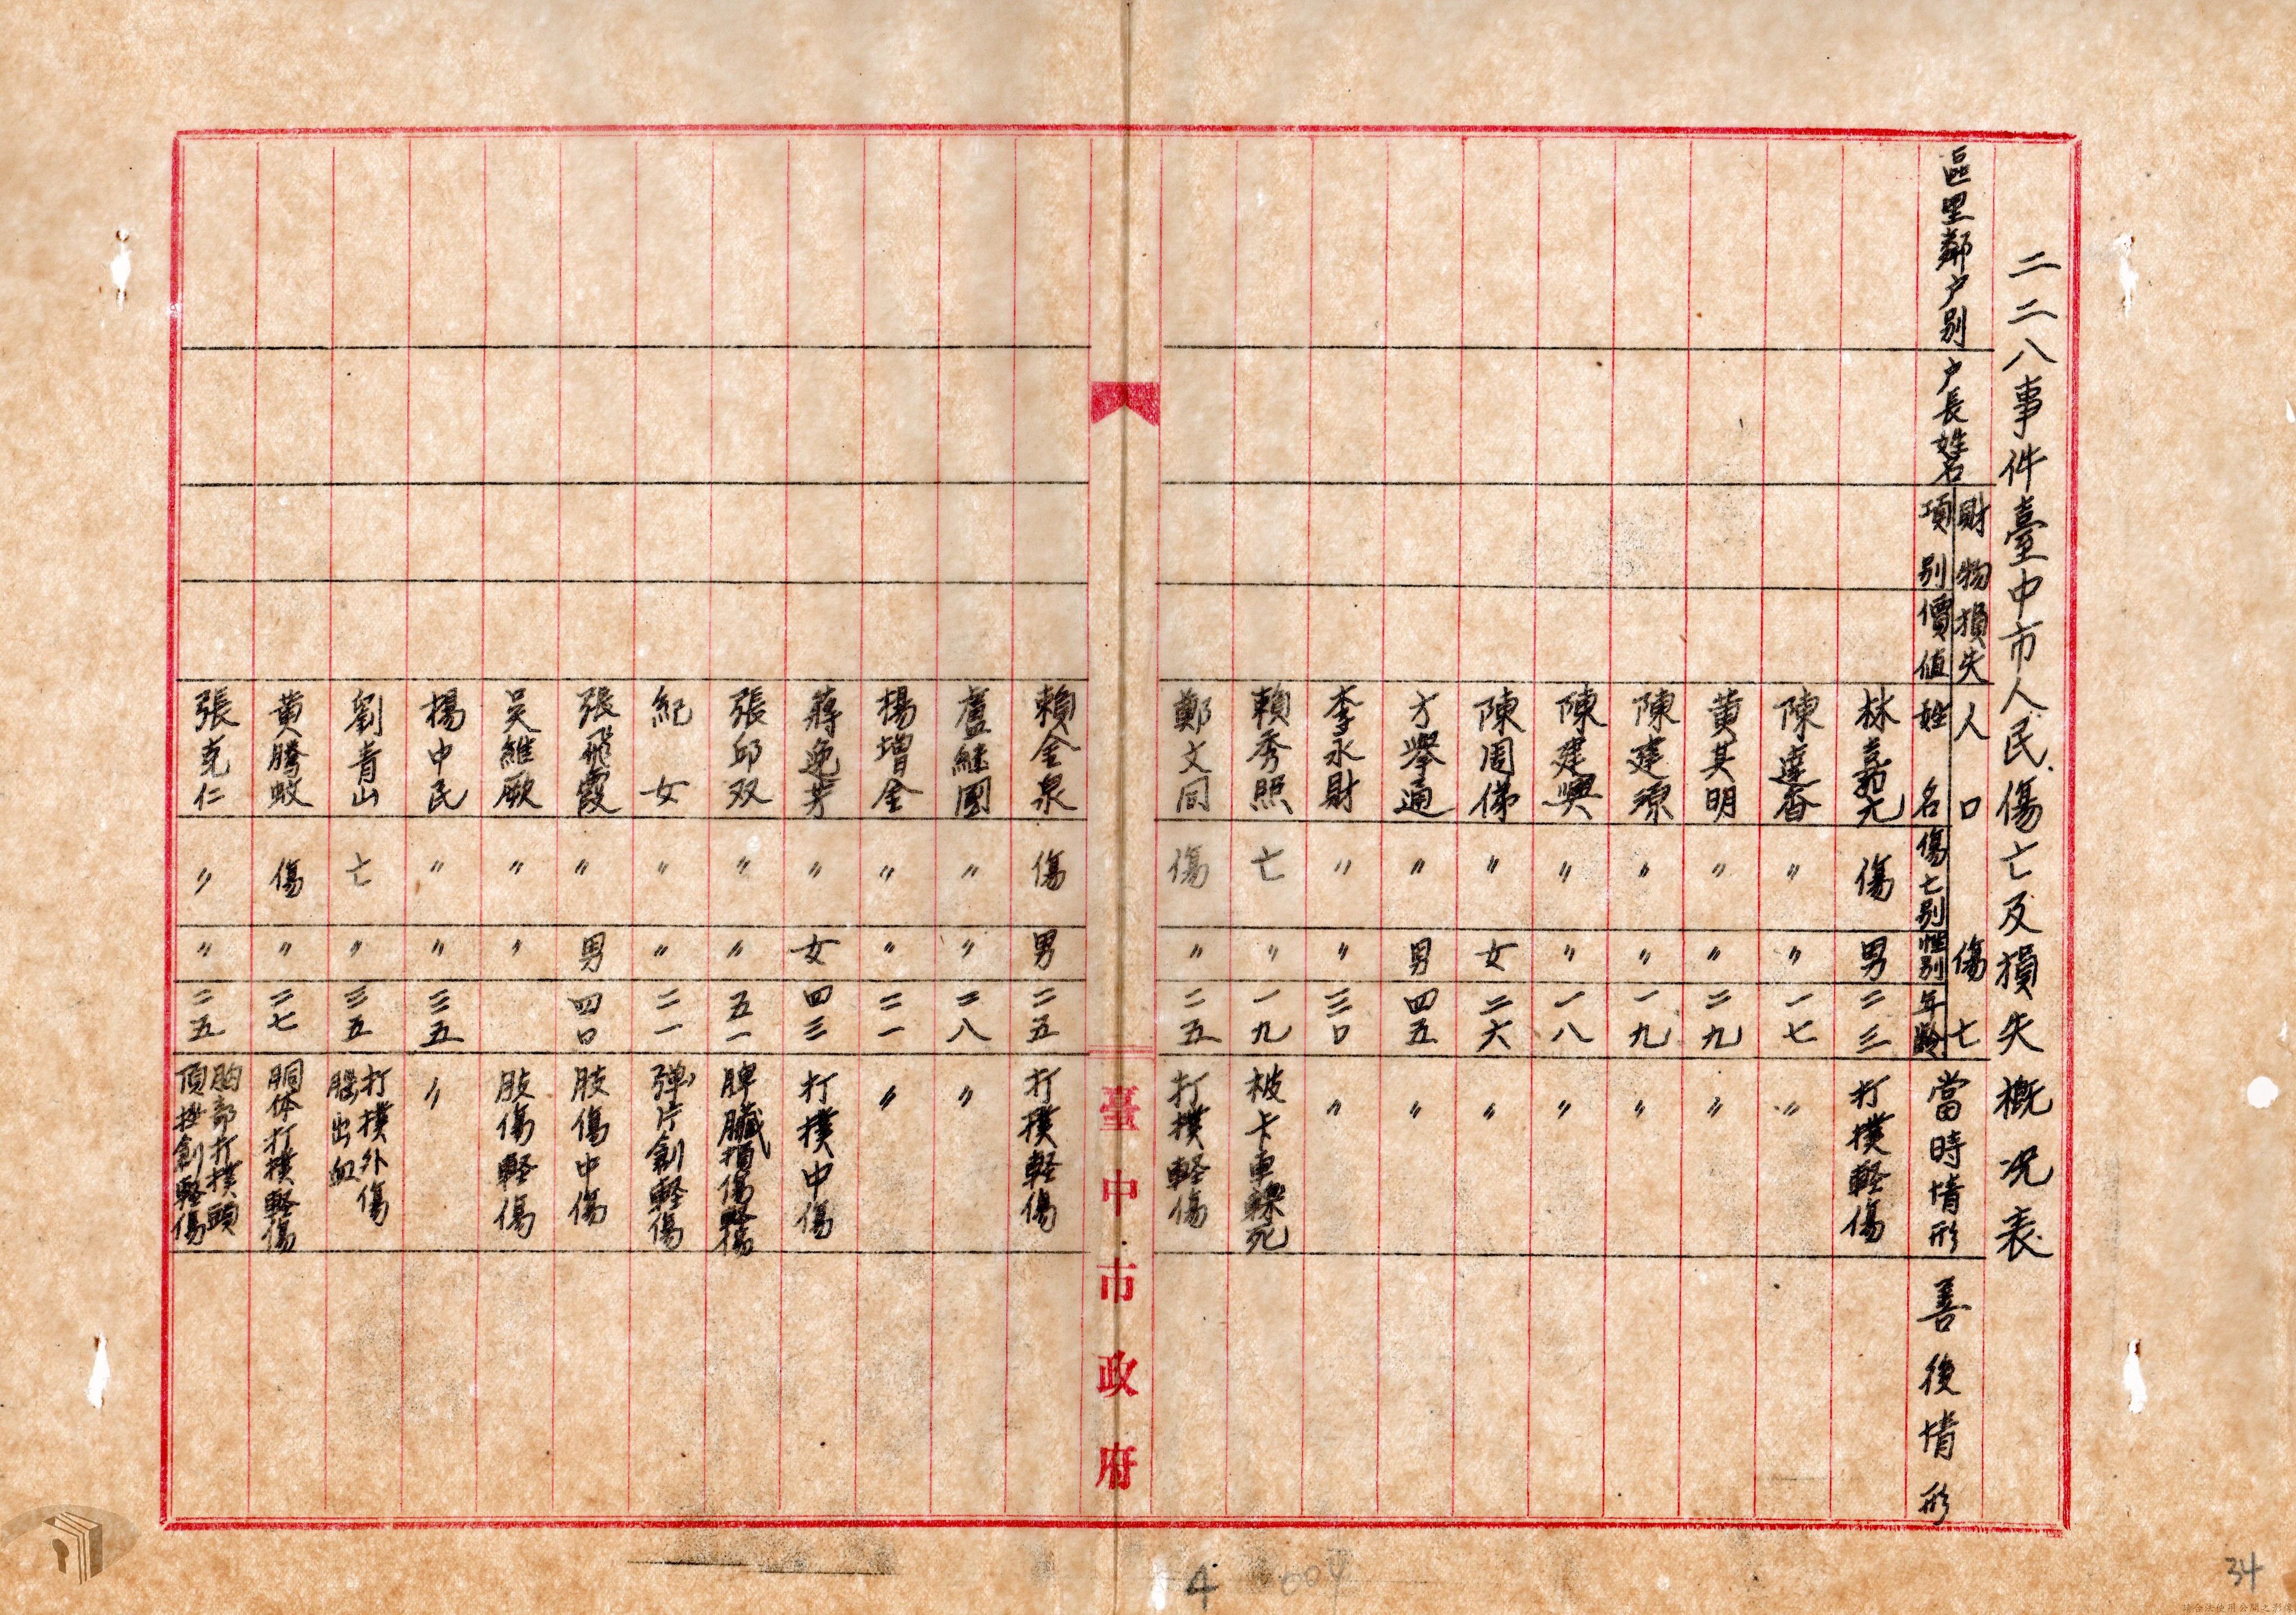 二二八事件臺中市人民傷亡及損失概況表
區里鄰户别 户長姓名 財物損失 項別 價值 人口傷亡 姓名 傷亡別 性別 年齡 當時情形 善後情形
林嘉九 傷 男 二三 打撲軽傷
陳達香 〃 〃 一七 〃
黄其明 〃 〃 二九 〃
陳建源 〃 〃 一九 〃
陳建興 〃 〃 一八 〃
陳周悌 〃 女 二六 〃
方舉通 〃 男 四五 〃
李永財 〃 〃 三口 〃
賴秀照 亡 〃 一九 被卡車轢死
鄭文同 傷 〃 二五 打撲軽傷
臺中市政府
賴金泉 傷 男 二五 打撲軽傷
盧繼國 〃 〃 二八 〃
楊增金 〃 〃 二一 〃
蔣逸芳 〃 女 四三 打撲中傷
張邱双 〃 〃 五一 脾臟損傷軽傷
紀女 〃 〃 二一 弹片創軽傷
張飛霞 〃 男 四口 肢傷中傷
吴維厥 〃 〃 肢傷軽傷
楊中民 〃 〃 三五 〃
劉青山 亡 〃 三五 打撲外傷腦出血
黄騰蛟 傷 〃 二七 胴体打撲軽傷
張克仁 〃 〃 二五 胸部打撲頭頂挫創軽傷
4
004
34